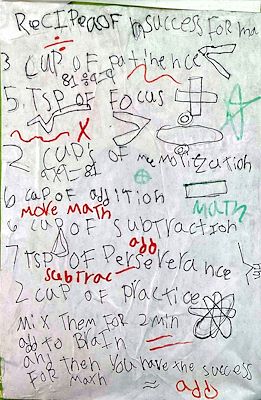 RecIPeaOF success FOR ma
3 CUP OF pathence
81÷9=9
5 TSP OF FOCUS
X
2 CUPS of memorization
9x9=81
6 CUP OF addition
MORE MATH
MATH
6 CUP OF SUBTRACTION
add
7 TSP OF Perseverance
SUBTRAC
2 CUP OF PRACTICE
MIX THEM FOR 2 MIN
add to BRAIN
and then you have the success
FOR math
= add